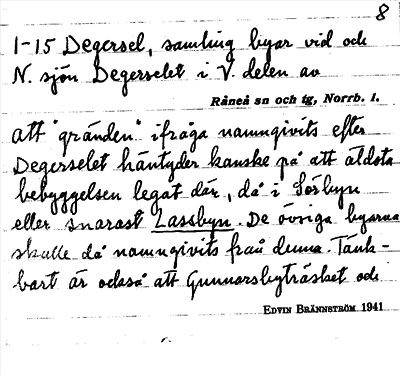 8
1-15 Degersel, samling byar vid och
N. sjön Degerselet i V. delen av
Råneå sn och tg, Norrb. l.
att "gränden" ifråga namngivits efter
Degerselet häntyder kanske på att äldsta
bebyggelsen legat där, då i Sörbyn
eller snarast Lassbyn. De övriga byarna
skulle då namngivits från denna. Tänk-
bart är också att Gunnarsbyträsket och
EDVIN BRÄNNSTRÖM 1941